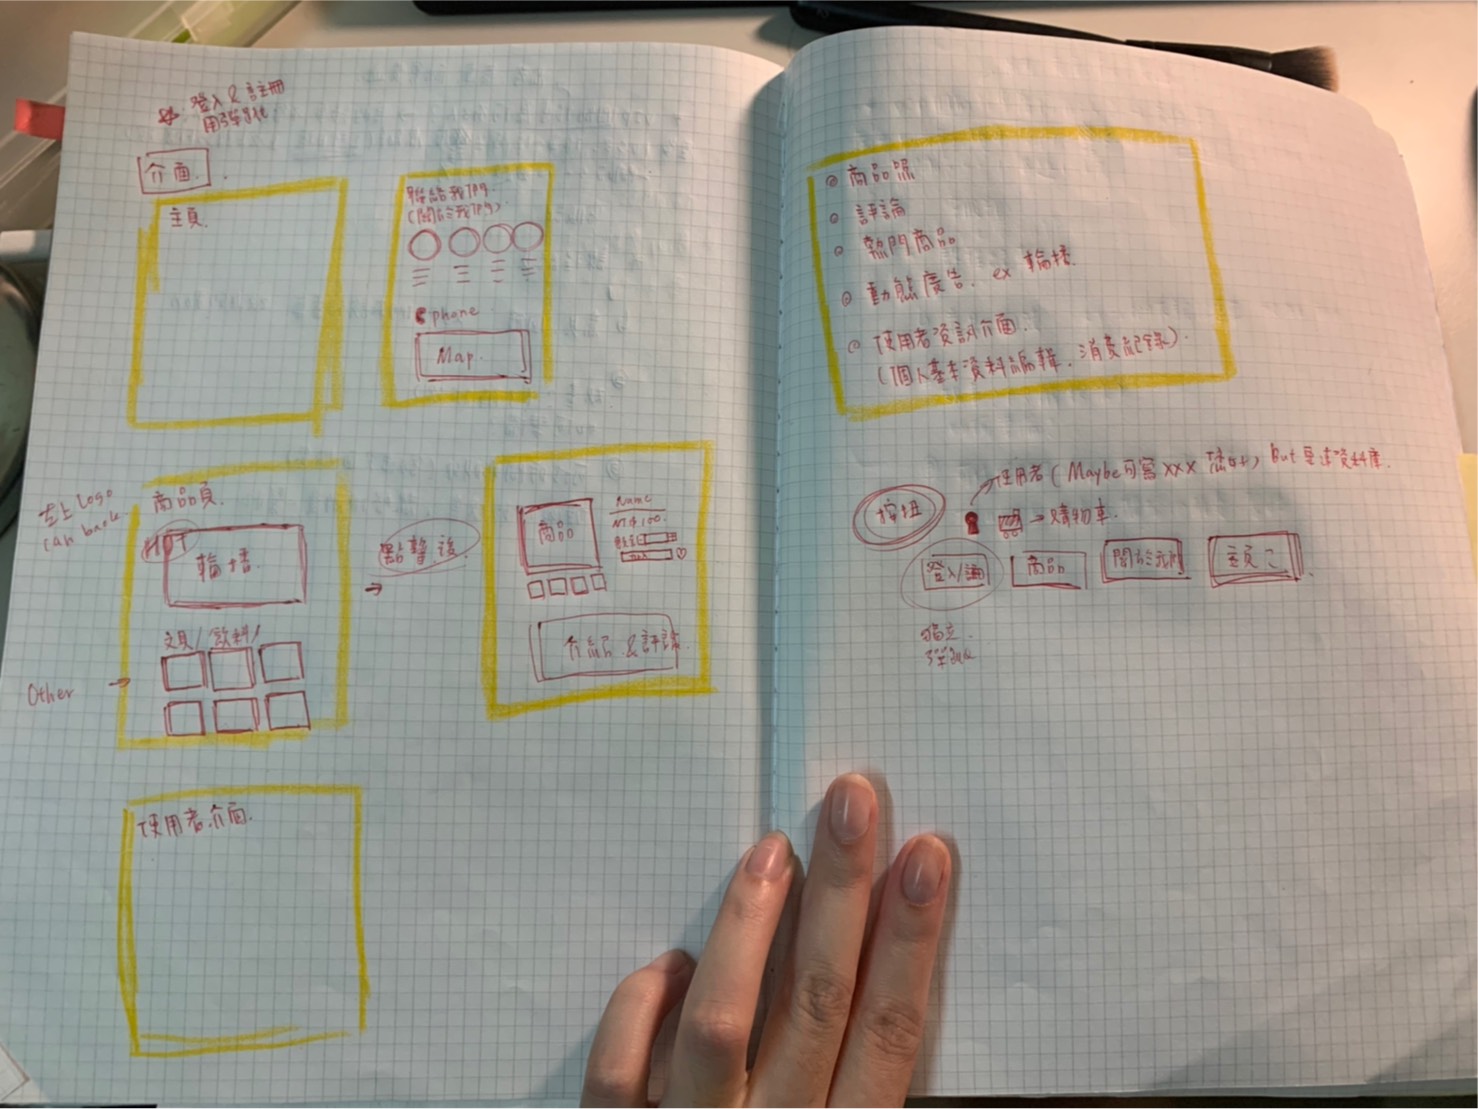 登入 & 註冊
介面
主頁
聯絡我們
(關於我們)
phone
Map
左上 Logo
can back
商品頁
HOT
輪播
文具/飲料/
Other
點擊後
商品
Name
NT$100
介紹 & 評論
使用者介面
商品
評論
熱門商品
動態廣告. ex 輪播
使用者資訊介面.
(個人基本資料編輯. 消費記錄)
按鈕
使用者 (Maybe可寫 xxx 您好) But 要連資料庫.
→購物車.
登入/註
商品
關於我們
主頁
獨立